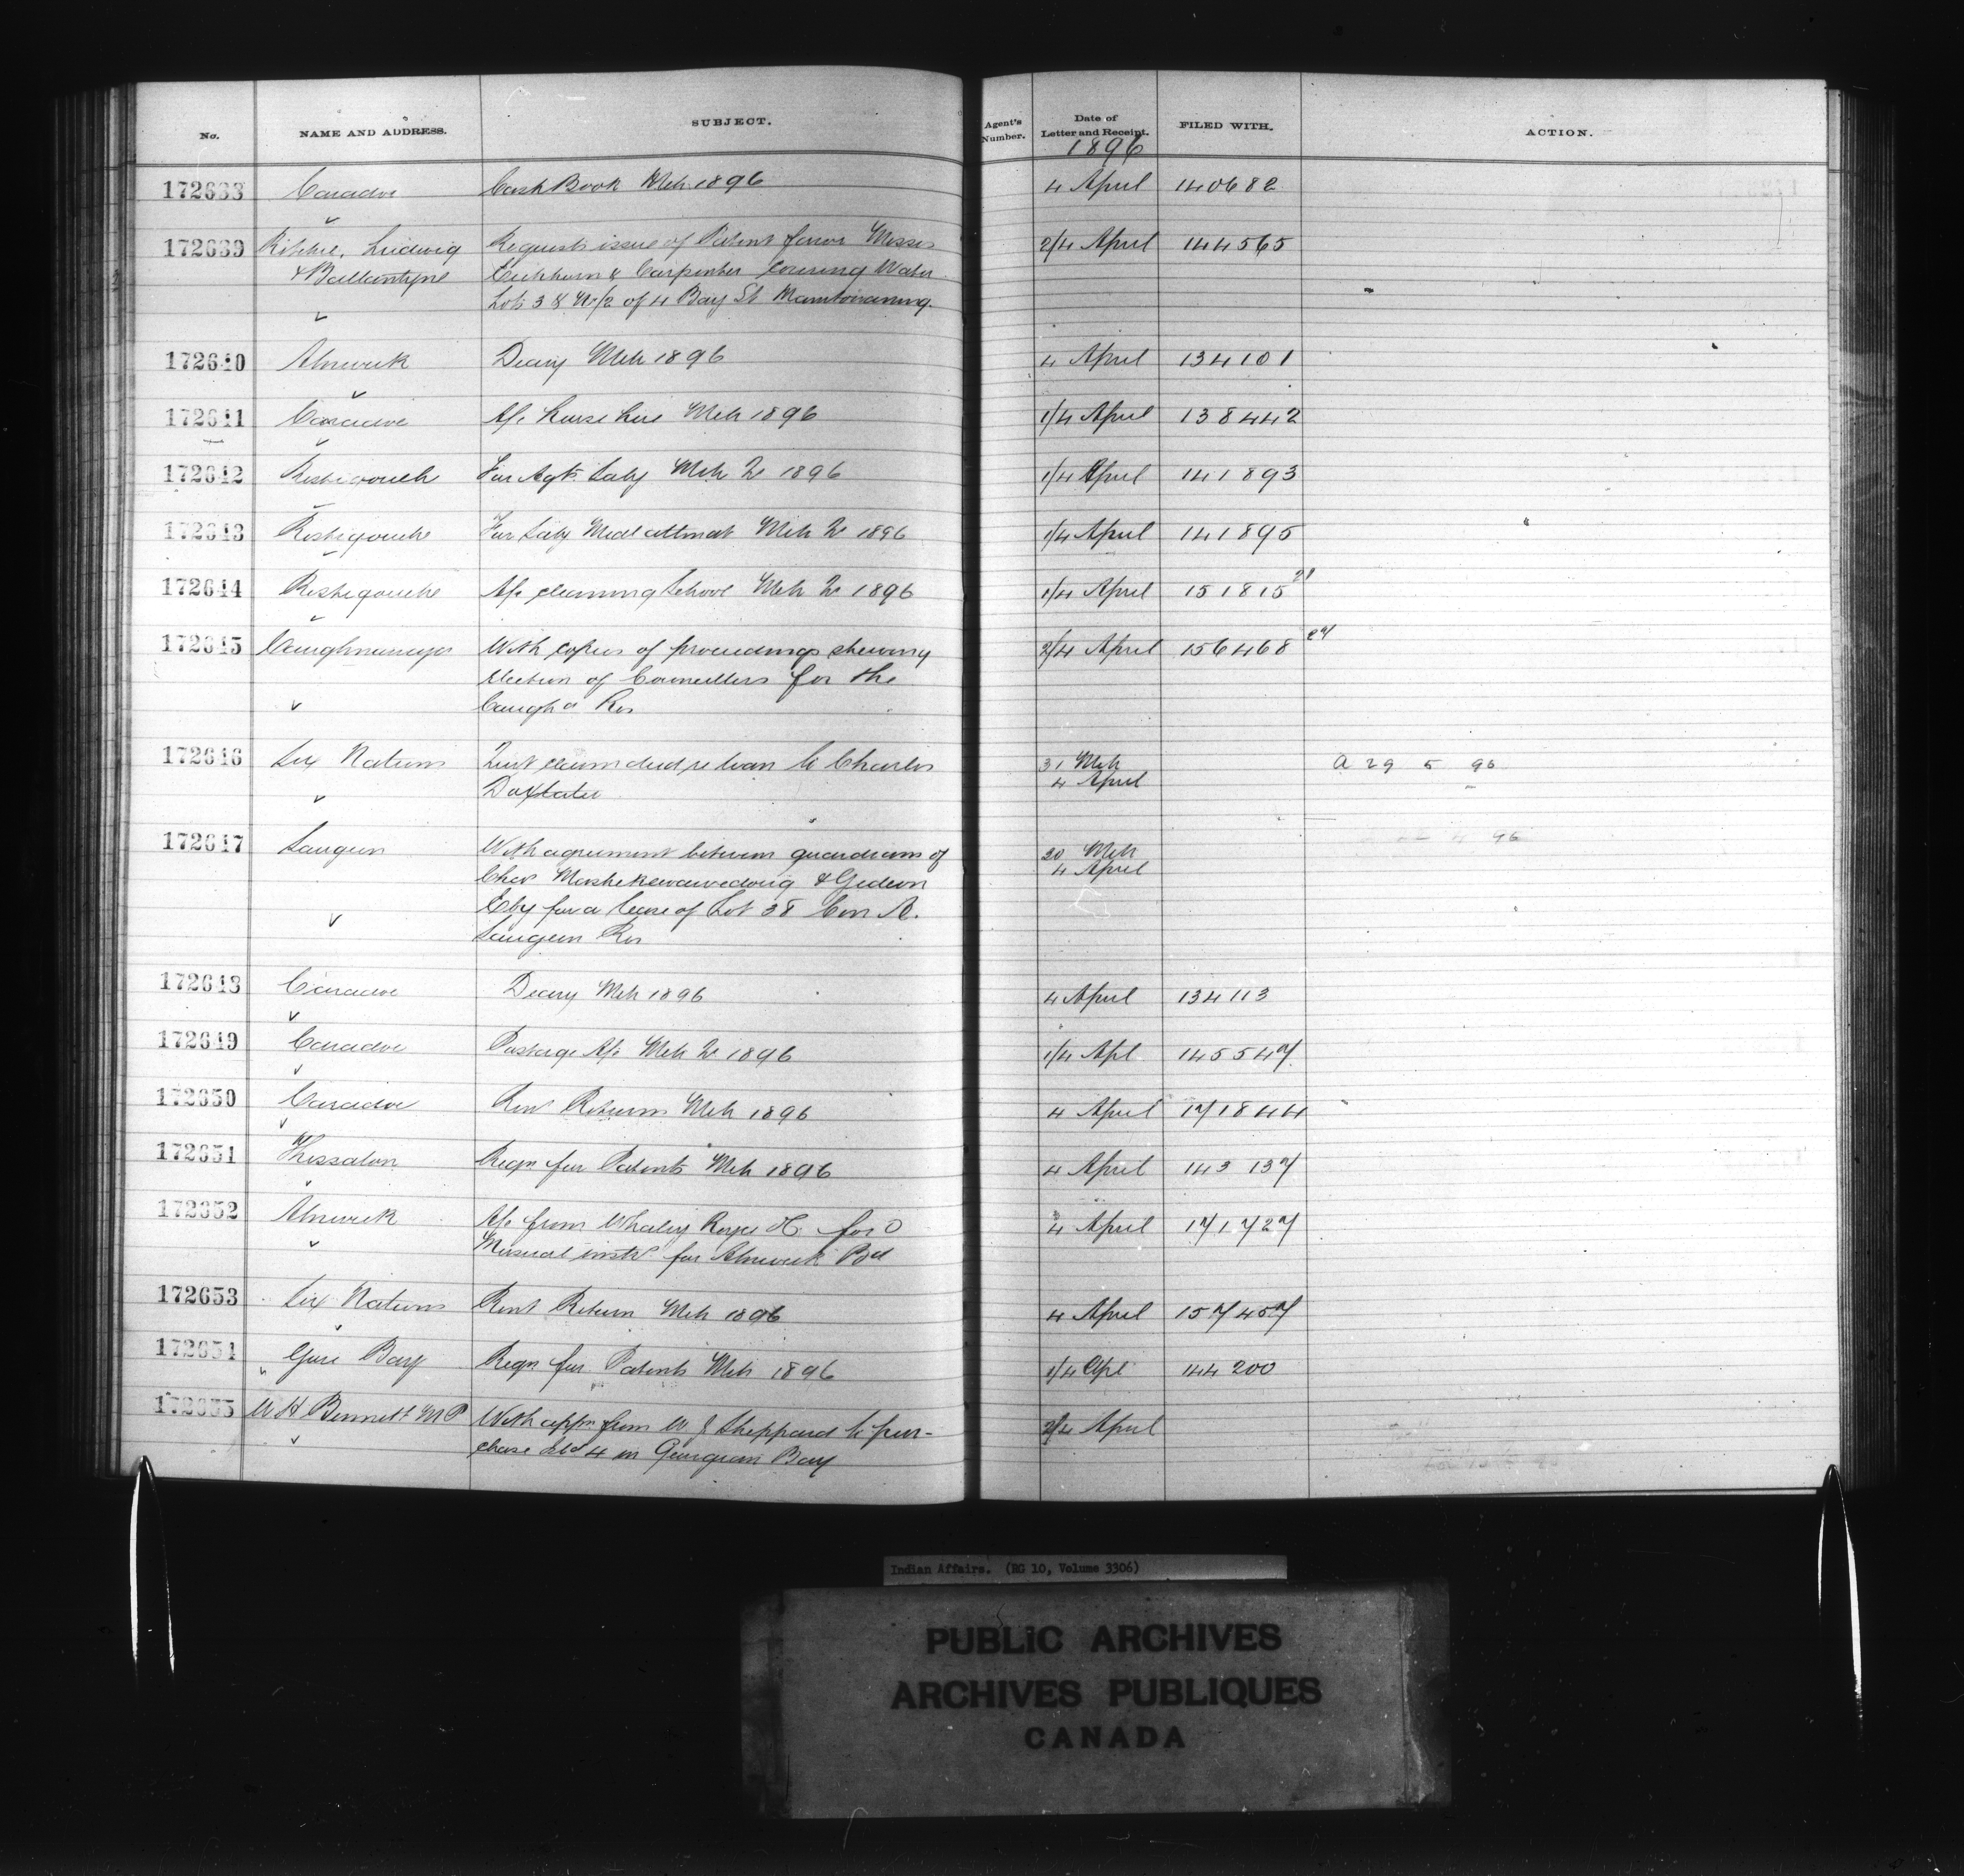 No. NAME AND ADDRESS. SUBJECT. Agent's Number. Date of Letter and Receipt. FILED WITH. ACTION.
1896
172638 Caradoc Cash Book Mch 1896 4 April 140682
172639 Ritchie, Ludwig Requests issue of Patent favor Messrs 2/4 April 144565
& Ballantyne Eichhorn & Carpenter covering Water
Lots 3 & W 1/2 of 4 Bay St Manitowaning.
172640 Alnwick Diary Mch 1896 4 April 134101
172641 Caradoc A/c horse hire Mch 1896 1/4 April 138442
172642 Restigouche For Agts Saly Mch Qr 1896 1/4 April 141893
172643 Restigouche For Saly Medl attndt Mch Qr 1896 1/4 April 141895
172644 Restigouche A/c cleaning School Mch Qr 1896 1/4 April 151815 21
172645 Caughnawaga With copies of proceedings shewing 2/4 April 156468 27
Election of Councillors for the
Caugha Res
172646 Six Nations Quit claim deed re loan to Charles 31 Mch A 29 5 96
Doxtater 4 April
172647 Saugeen With agreement between guardians of 20 Mch 4 96
Chas Mashekewawedong & Gideon 4 April
Eby for a lease of Lot 38 Con A.
Saugeen Res
172648 Caradoc Diary Mch 1896 4 April 134113
172649 Caradoc Postage A/c Mch Qr 1896 1/4 Apl 145547
172650 Caradoc Rent Return Mch 1896 4 April 171844
172651 Thessalon Regn for Patents Mch 1896 4 April 143137
172652 Alnwick A/c from Whaley Royce & Co for 4 April 171727
Musical instr for Alnwick Bd
172653 Six Nations Rent Return Mch 1896 4 April 157457
172654 Gore Bay Regn for Patents Mch 1896 1/4 Apl 144200
172655 W H Bennett M P With appn from W J Sheppard to pur- 2/4 April
chase Isld 4 in Georgian Bay
Indian Affairs. (RG 10, Volume 3306)
PUBLIC ARCHIVES
ARCHIVES PUBLIQUES
CANADA